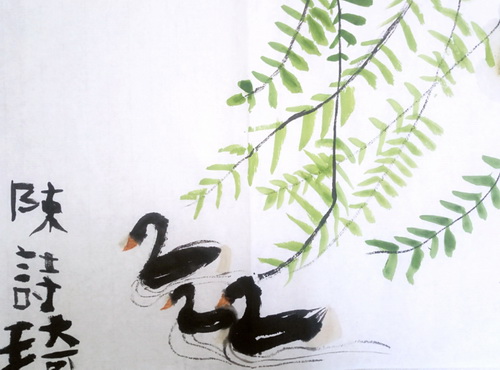 陳詩琦